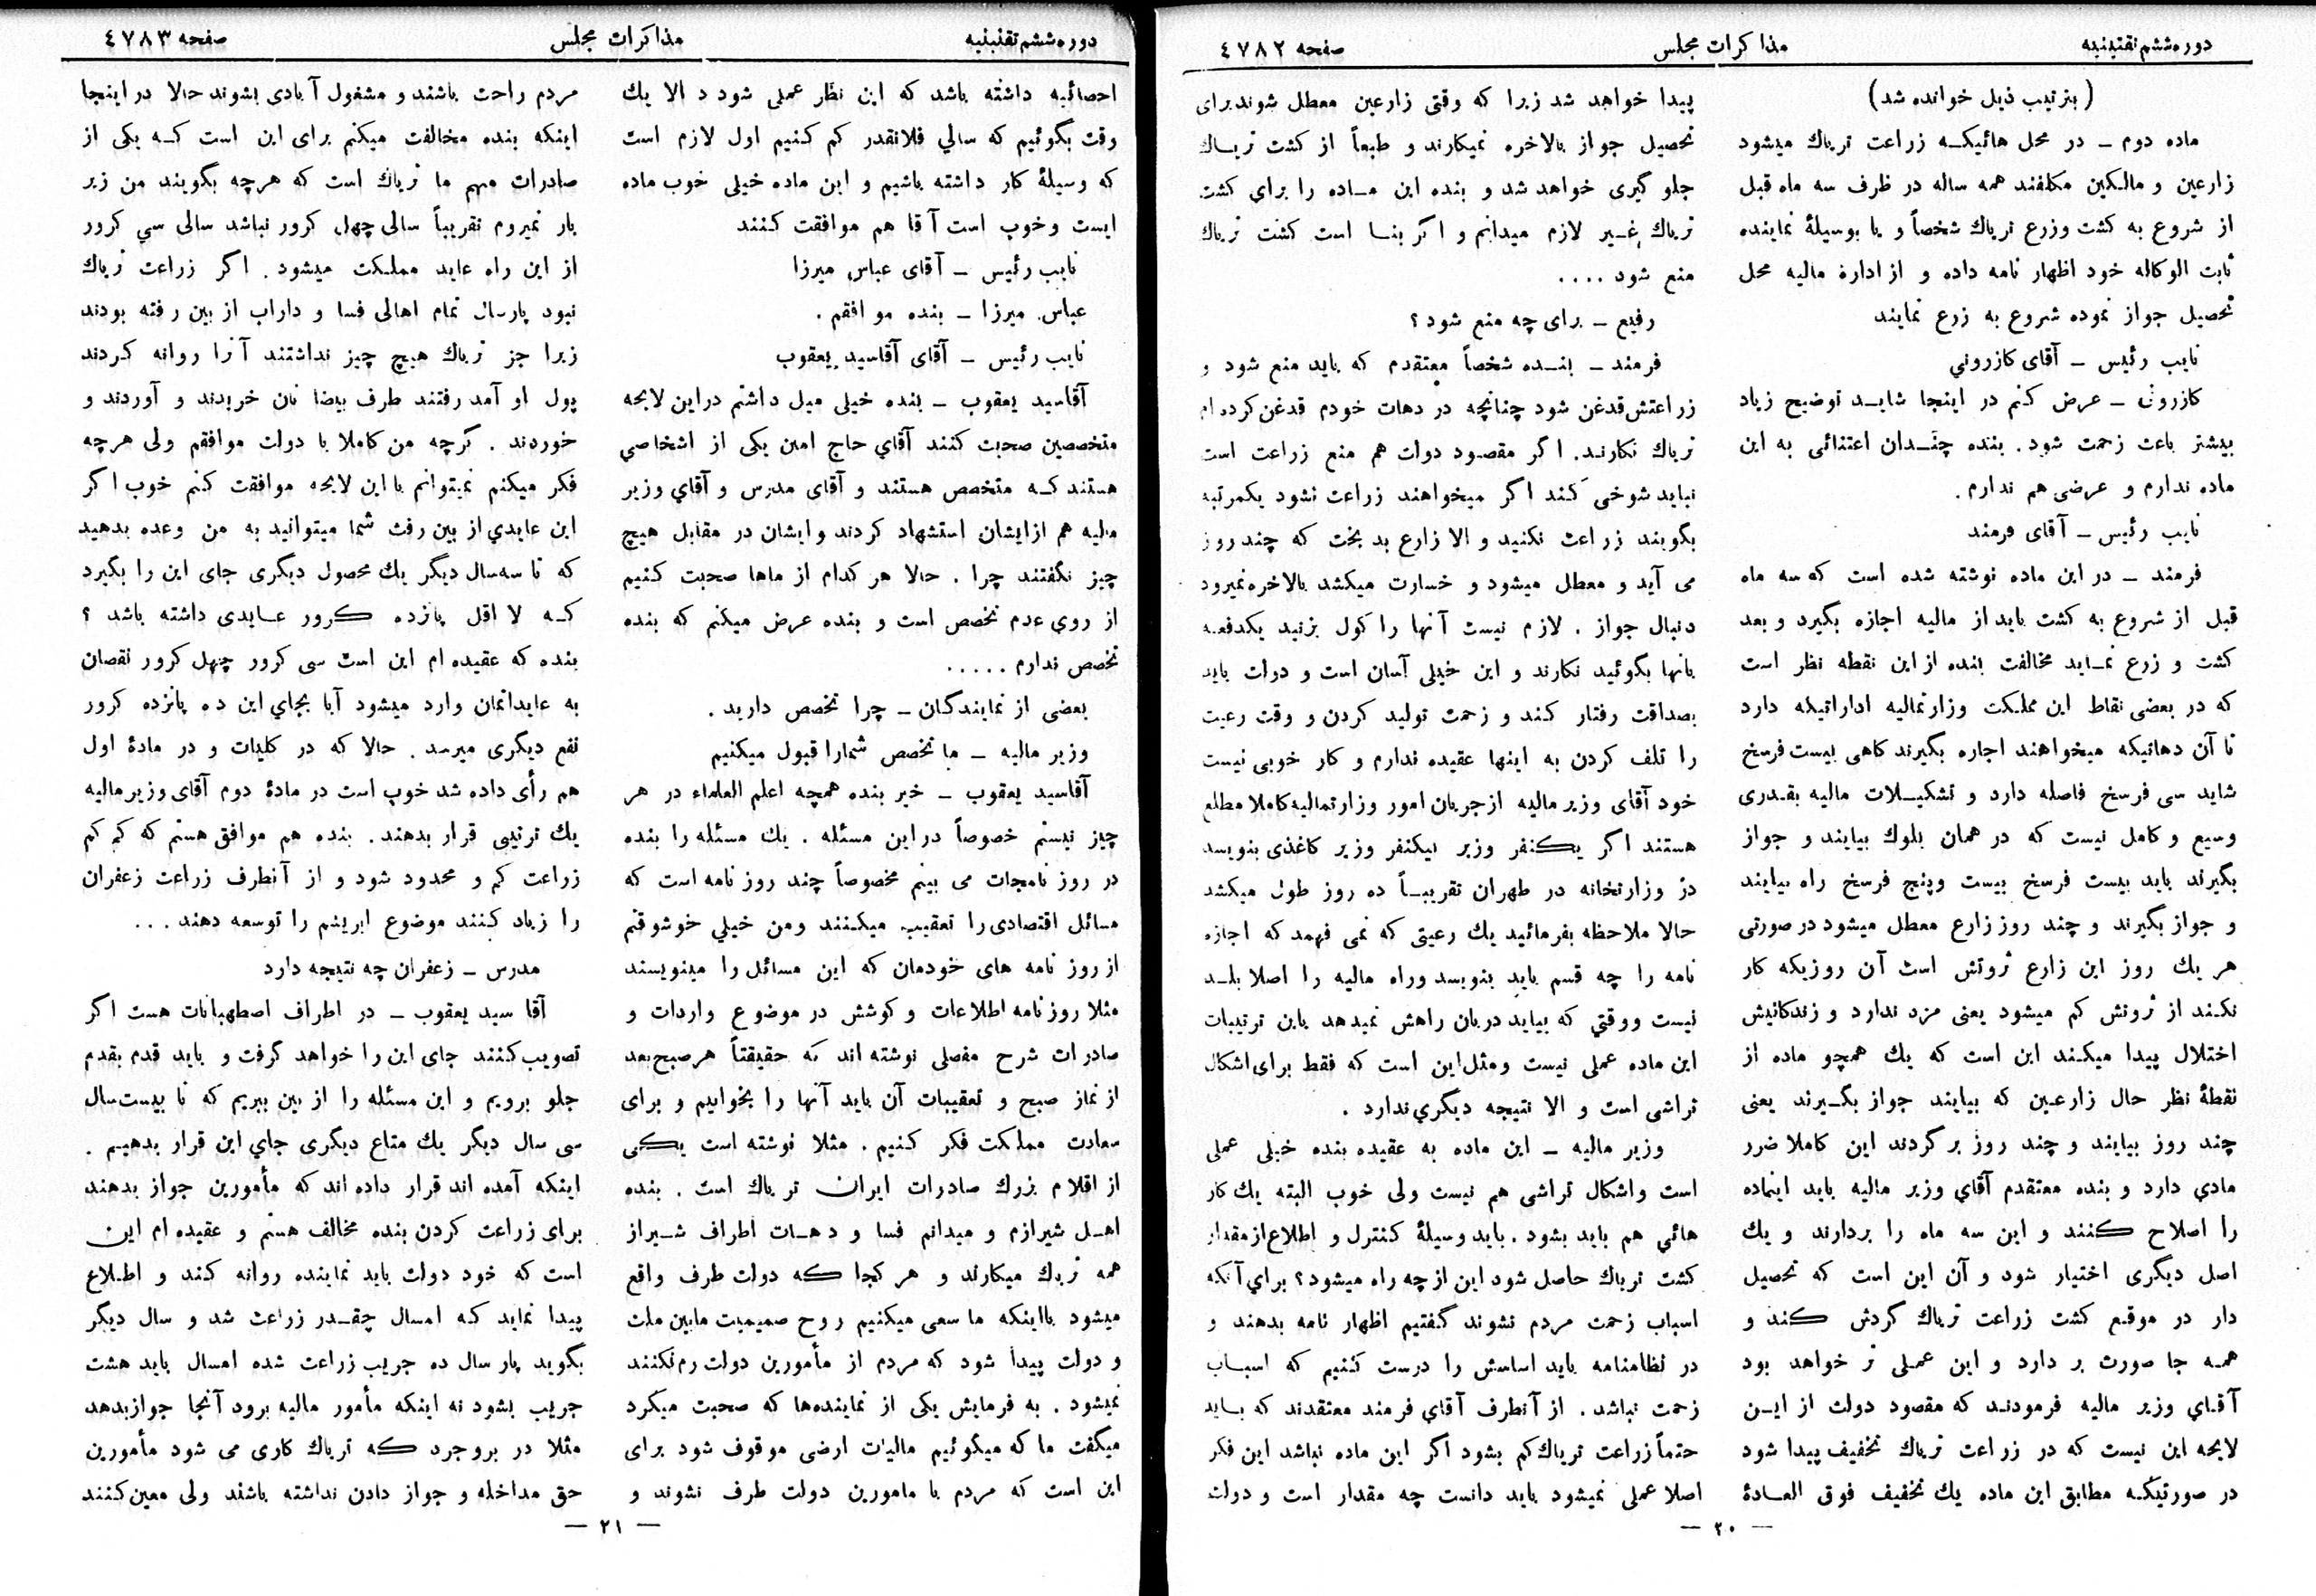 دوره ششم تقنینیه
مذاکرات مجلس
صفحه ٤٧٨٢
(بترتیب ذیل خوانده شد)
ماده دوم ــ در محل هائیکه زراعت تریاك میشود
زارعین و مالکین مکلفند همه ساله در ظرف سه ماه قبل
از شروع به کشت وزرع تریاك شخصاً و یا بوسیلهٔ نماینده
ثابت الوکاله خود اظهار نامه داده و از ادارهٔ مالیه محل
تحصیل جواز نموده شروع به زرع نمایند
نایب رئیس ــ آقای کازرونی
کازرونی ــ عرض کنم در اینجا شاید توضیح زیاد
بیشتر باعث زحمت شود. بنده چندان اعتنائی به این
ماده ندارم و عرضی هم ندارم.
نایب رئیس ــ آقای فرمند
فرمند ــ در این ماده نوشته شده است که سه ماه
قبل از شروع به کشت باید از مالیه اجازه بگیرد و بعد
کشت و زرع نماید مخالفت بنده از این نقطه نظر است
که در بعضی نقاط این مملکت وزارتمالیه اداراتیکه دارد
تا آن دهاتیکه میخواهند اجازه بگیرند کاهی بیست فرسخ
شاید سی فرسخ فاصله دارد و تشکیلات مالیه بقدری
وسیع و کامل نیست که در همان بلوك بیایند و جواز
بگیرند باید بیست فرسخ بیست وپنج فرسخ راه بیایند
و جواز بگیرند و چند روز زارع معطل میشود در صورتی
هر یك روز این زارع ثروتش است آن روزیکه کار
نکند از ثروتش کم میشود یعنی مزد ندارد و زندکانیش
اختلال پیدا میکند این است که یك همچو ماده از
نقطهٔ نظر حال زارعین که بیایند جواز بگیرند یعنی
چند روز بیایند و چند روز بر گردند این کاملا ضرر
مادي دارد و بنده معتقدم آقاي وزیر مالیه باید اینماده
را اصلاح کنند و این سه ماه را بردارند و یك
اصل دیگری اختیار شود و آن این است که تحصیل
دار در موقع کشت زراعت تریاك گردش کند و
همه جا صورت بر دارد و این عملی تر خواهد بود
آقاي وزیر مالیه فرمودند که مقصود دولت از این
لایحه این نیست که در زراعت تریاك تخفیف پیدا شود
در صورتیکه مطابق این ماده یك تخفیف فوق العادهٔ
پیدا خواهد شد زیرا که وقتی زارعین معطل شوند برای
تحصیل جواز بالاخره نمیکارند و طبعاً از کشت تریاك
جلو گیری خواهد شد و بنده این ماده را براي کشت
تریاك غیر لازم میدانم و اگر بنا است کشت تریاك
منع شود ....
رفیع ــ برای چه منع شود ؟
فرمند ــ بنده شخصاً معتقدم که باید منع شود و
زراعتش قدغن شود چنانچه در دهات خودم قدغن کرده ام
تریاك نکارند. اگر مقصود دولت هم منع زراعت است
نباید شوخی کند اگر میخواهند زراعت نشود یکمرتبه
بگویند زراعت نکنید و الا زارع بد بخت که چند روز
می آید و معطل میشود و خسارت میکشد بالاخره نمیرود
دنبال جواز . لازم نیست آنها را کول بزنید یکدفعه
بآنها بگوئید نکارند و این خیلی آسان است و دولت باید
بصداقت رفتار کند و زحمت تولید کردن و وقت رعیت
را تلف کردن به اینها عقیده ندارم و کار خوبی نیست
خود آقای وزیر مالیه از جریان امور وزارتمالیه کاملا مطلع
هستند اگر یکنفر وزیر بیکنفر وزیر کاغذی بنویسد
در وزارتخانه در طهران تقریباً ده روز طول میکشد
حالا ملاحظه بفرمائید یك رعیتی که نمی فهمد که اجازه
نامه را چه قسم باید بنویسد وراه مالیه را اصلا بلد
نیست ووقتي که بیاید دربان راهش نمیدهد باین ترتیبات
این ماده عملی نیست ومثل این است که فقط برای اشکال
تراشی است و الا نتیجه دیگري ندارد .
وزیر مالیه ــ این ماده به عقیده بنده خیلی عملی
است واشکال تراشی هم نیست ولی خوب البته یك کار
هائي هم باید بشود . باید وسیلهٔ کنترل و اطلاع از مقدار
کشت تریاك حاصل شود این از چه راه میشود؟ براي آنکه
اسباب زحمت مردم نشوند گفتیم اظهار نامه بدهند و
در نظامنامه باید اساسش را درست کنیم که اسباب
زحمت نباشد . از آنطرف آقاي فرمند معتقدند که باید
حتماً زراعت تریاك کم بشود اگر این ماده نباشد این فکر
اصلا عملی نمیشود باید دانست چه مقدار است و دولت
ــ ٢٠ ــ
دوره ششم تقنینیه
مذاکرات مجلس
صفحه ٤٧٨٣
احصائیه داشته باشد که این نظر عملی شود د الا یك
وقت بگوئیم که سالي فلانقدر کم کنیم اول لازم است
که وسیلهٔ کار داشته باشیم و این ماده خیلی خوب ماده
ایست وخوب است آقا هم موافقت کنند
نایب رئیس ــ آقای عباس میرزا
عباس میرزا ــ بنده موافقم .
نایب رئیس ــ آقای آقاسید یعقوب
آقاسید یعقوب ــ بنده خیلی میل داشتم دراین لایحه
متخصصین صحبت کنند آقاي حاج امین یکی از اشخاصي
هستند که متخصص هستند و آقای مدرس و آقاي وزیر
مالیه هم ازایشان استشهاد کردند وایشان در مقابل هیچ
چیز نگفتند چرا . حالا هر کدام از ماها صحبت کنیم
از روی عدم تخصص است و بنده عرض میکنم که بنده
تخصص ندارم .....
بعضی از نمایندگان ــ چرا تخصص دارید .
وزیر مالیه ــ ما تخصص شمارا قبول میکنیم
آقاسید یعقوب ــ خیر بنده همچه اعلم العلماء در هر
چیز نیستم خصوصاً دراین مسئله . یك مسئله را بنده
در روز نامجات می بینم مخصوصاً چند روز نامه است که
مسائل اقتصادی را تعقیب میکنند ومن خیلي خوشوقتم
از روز نامه های خودمان که این مسائل را مینویسند
مثلا روزنامه اطلاعات و کوشش در موضوع واردات و
صادرات شرح مفصلی نوشته اند که حقیقتاً هر صبح بعد
از نماز صبح و تعقیبات آن باید آنها را بخوانیم و برای
سعادت مملکت فکر کنیم . مثلا نوشته است یکی
از اقلام بزرك صادرات ایران تریاك است . بنده
اهل شیرازم و میدانم فسا و دهات اطراف شیراز
همه تریاك میکارند و هر کجا که دولت طرف واقع
میشود بااینکه ما سعی میکنیم روح صمیمیت مابین ملت
و دولت پیدا شود که مردم از مأمورین دولت رم نکنند
نمیشود . به فرمایش یکی از نماینده‌ها که صحبت میکرد
میگفت ما که میگوئیم مالیات ارضی موقوف شود برای
این است که مردم با مامورین دولت طرف نشوند و
مردم راحت باشند و مشغول آبادی بشوند حالا در اینجا
اینکه بنده مخالفت میکنم برای این است که یکی از
صادرات مهم ما تریاك است که هرچه بگویند من زیر
بار نمیروم تقریباً سالی چهل کرور نباشد سالی سي کرور
از این راه عاید مملکت میشود . اگر زراعت تریاك
نبود پارسال تمام اهالی فسا و داراب از بین رفته بودند
زیرا جز تریاك هیچ چیز نداشتند آنرا روانه کردند
پول او آمد رفتند طرف بیضا نان خریدند و آوردند و
خوردند . گرچه من کاملا با دولت موافقم ولی هرچه
فکر میکنم نمیتوانم با این لایحه موافقت کنم خوب اگر
این عایدي از بین رفت شما میتوانید به من وعده بدهید
که تا سه سال دیگر یك محصول دیگری جای این را بگیرد
که لا اقل پانزده کرور عایدی داشته باشد ؟
بنده که عقیده ام این است سی کرور چهل کرور نقصان
به عایداتمان وارد میشود آیا بجاي این ده پانزده کرور
نفع دیگری میرسد . حالا که در کلیات و در مادهٔ اول
هم رأی داده شد خوب است در مادهٔ دوم آقای وزیر مالیه
یك ترتیبی قرار بدهند . بنده هم موافق هستم که کم کم
زراعت کم و محدود شود و از آنطرف زراعت زعفران
را زیاد کنند موضوع ابریشم را توسعه دهند ...
مدرس ــ زعفران چه نتیجه دارد
آقا سید یعقوب ــ در اطراف اصطهبانات هست اگر
تصویب کنند جای این را خواهد گرفت و باید قدم بقدم
جلو برویم و این مسئله را از بین ببریم که تا بیست سال
سی سال دیگر یك متاع دیگری جاي این قرار بدهیم .
اینکه آمده اند قرار داده اند که مأمورین جواز بدهند
برای زراعت کردن بنده مخالف هستم و عقیده ام این
است که خود دولت باید نماینده روانه کند و اطلاع
پیدا نماید که امسال چقدر زراعت شد و سال دیگر
بگوید پار سال ده جریب زراعت شده امسال باید هشت
جریب بشود نه اینکه مأمور مالیه برود آنجا جواز بدهد
مثلا در بروجرد که تریاك کاری می شود مأمورین
حق مداخله و جواز دادن نداشته باشند ولی معین کنند
ــ ٢١ ــ